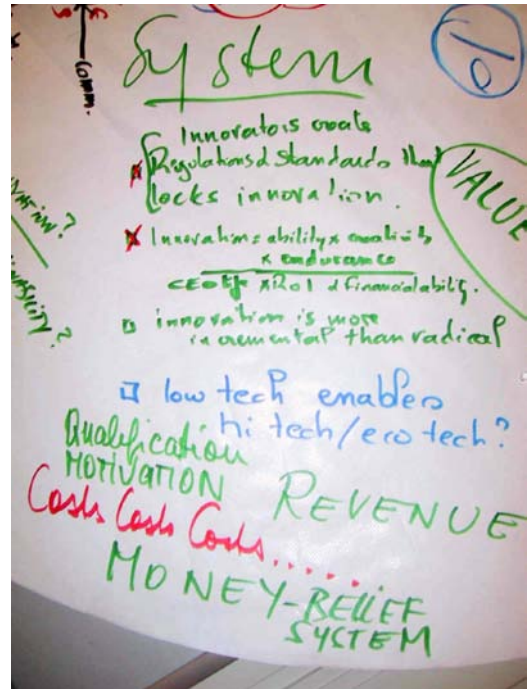 Comm.
System
10
Innovators create
Regulations & Standards that
locks innovation.
VALUE
Innovation = ability x creativity
x endurance
x ROI & financial ability.
innovation is more
incremental than radical
low tech enables
hi tech/eco tech?
Qualification
MOTIVATION
REVENUE
Costs Costs Costs......
MONEY-BELIEF
SYSTEM